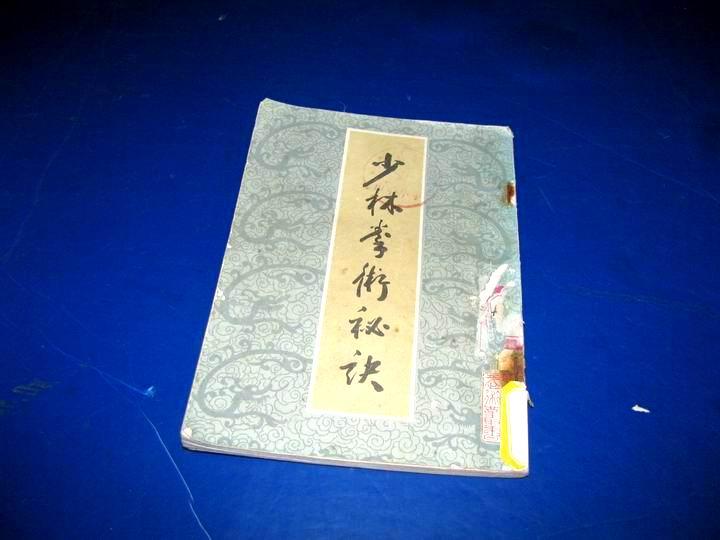 少林拳術秘訣